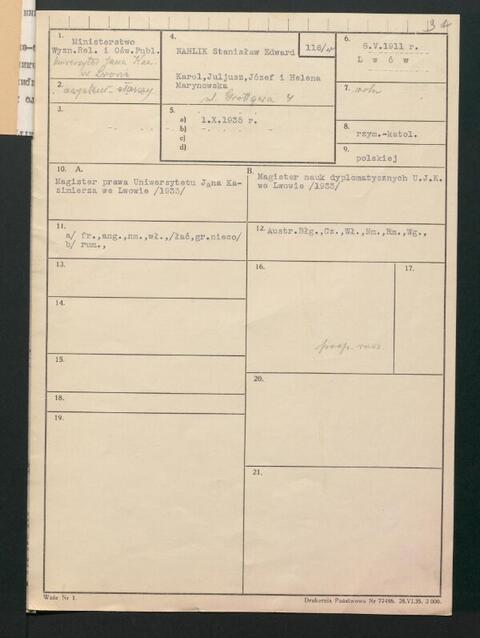 13
1.
Ministerstwo
Wyzn.Rel. i Ośw.Publ.
Uniwersytet Jana Kaz.
w Lwowie
2.
asystent starszy
3.
4.
NAHLIK Stanisław Edward
116/w
Karol,Juljusz,Józef i Helena
Marynowska
ul. Grottgera 4
5.
a) 1.X.1935 r.
b)
c)
d)
6.
8.V.1911 r.
L w ó w
7. woln
8.
rzym.-katol.
9.
polskiej
10. A.
Magister prawa Uniwersytetu Jana Ka-
zimierza we Lwowie /1933/
B.
Magister nauk dyplomatycznych U.J.K.
we Lwowie /1933/
11.
a/ fr.,ang.,nm.,wł.,/łać,gr.nieco/
b/ rum.,
12. Austr.Błg.,Cz.,Wł.,Nm.,Rm.,Wg.,
13.
14.
15.
16.
17.
18.
19.
20.
21.
Wzór Nr 1.
Drukarnia Państwowa Nr 77486. 28.VI.35. 3 000.